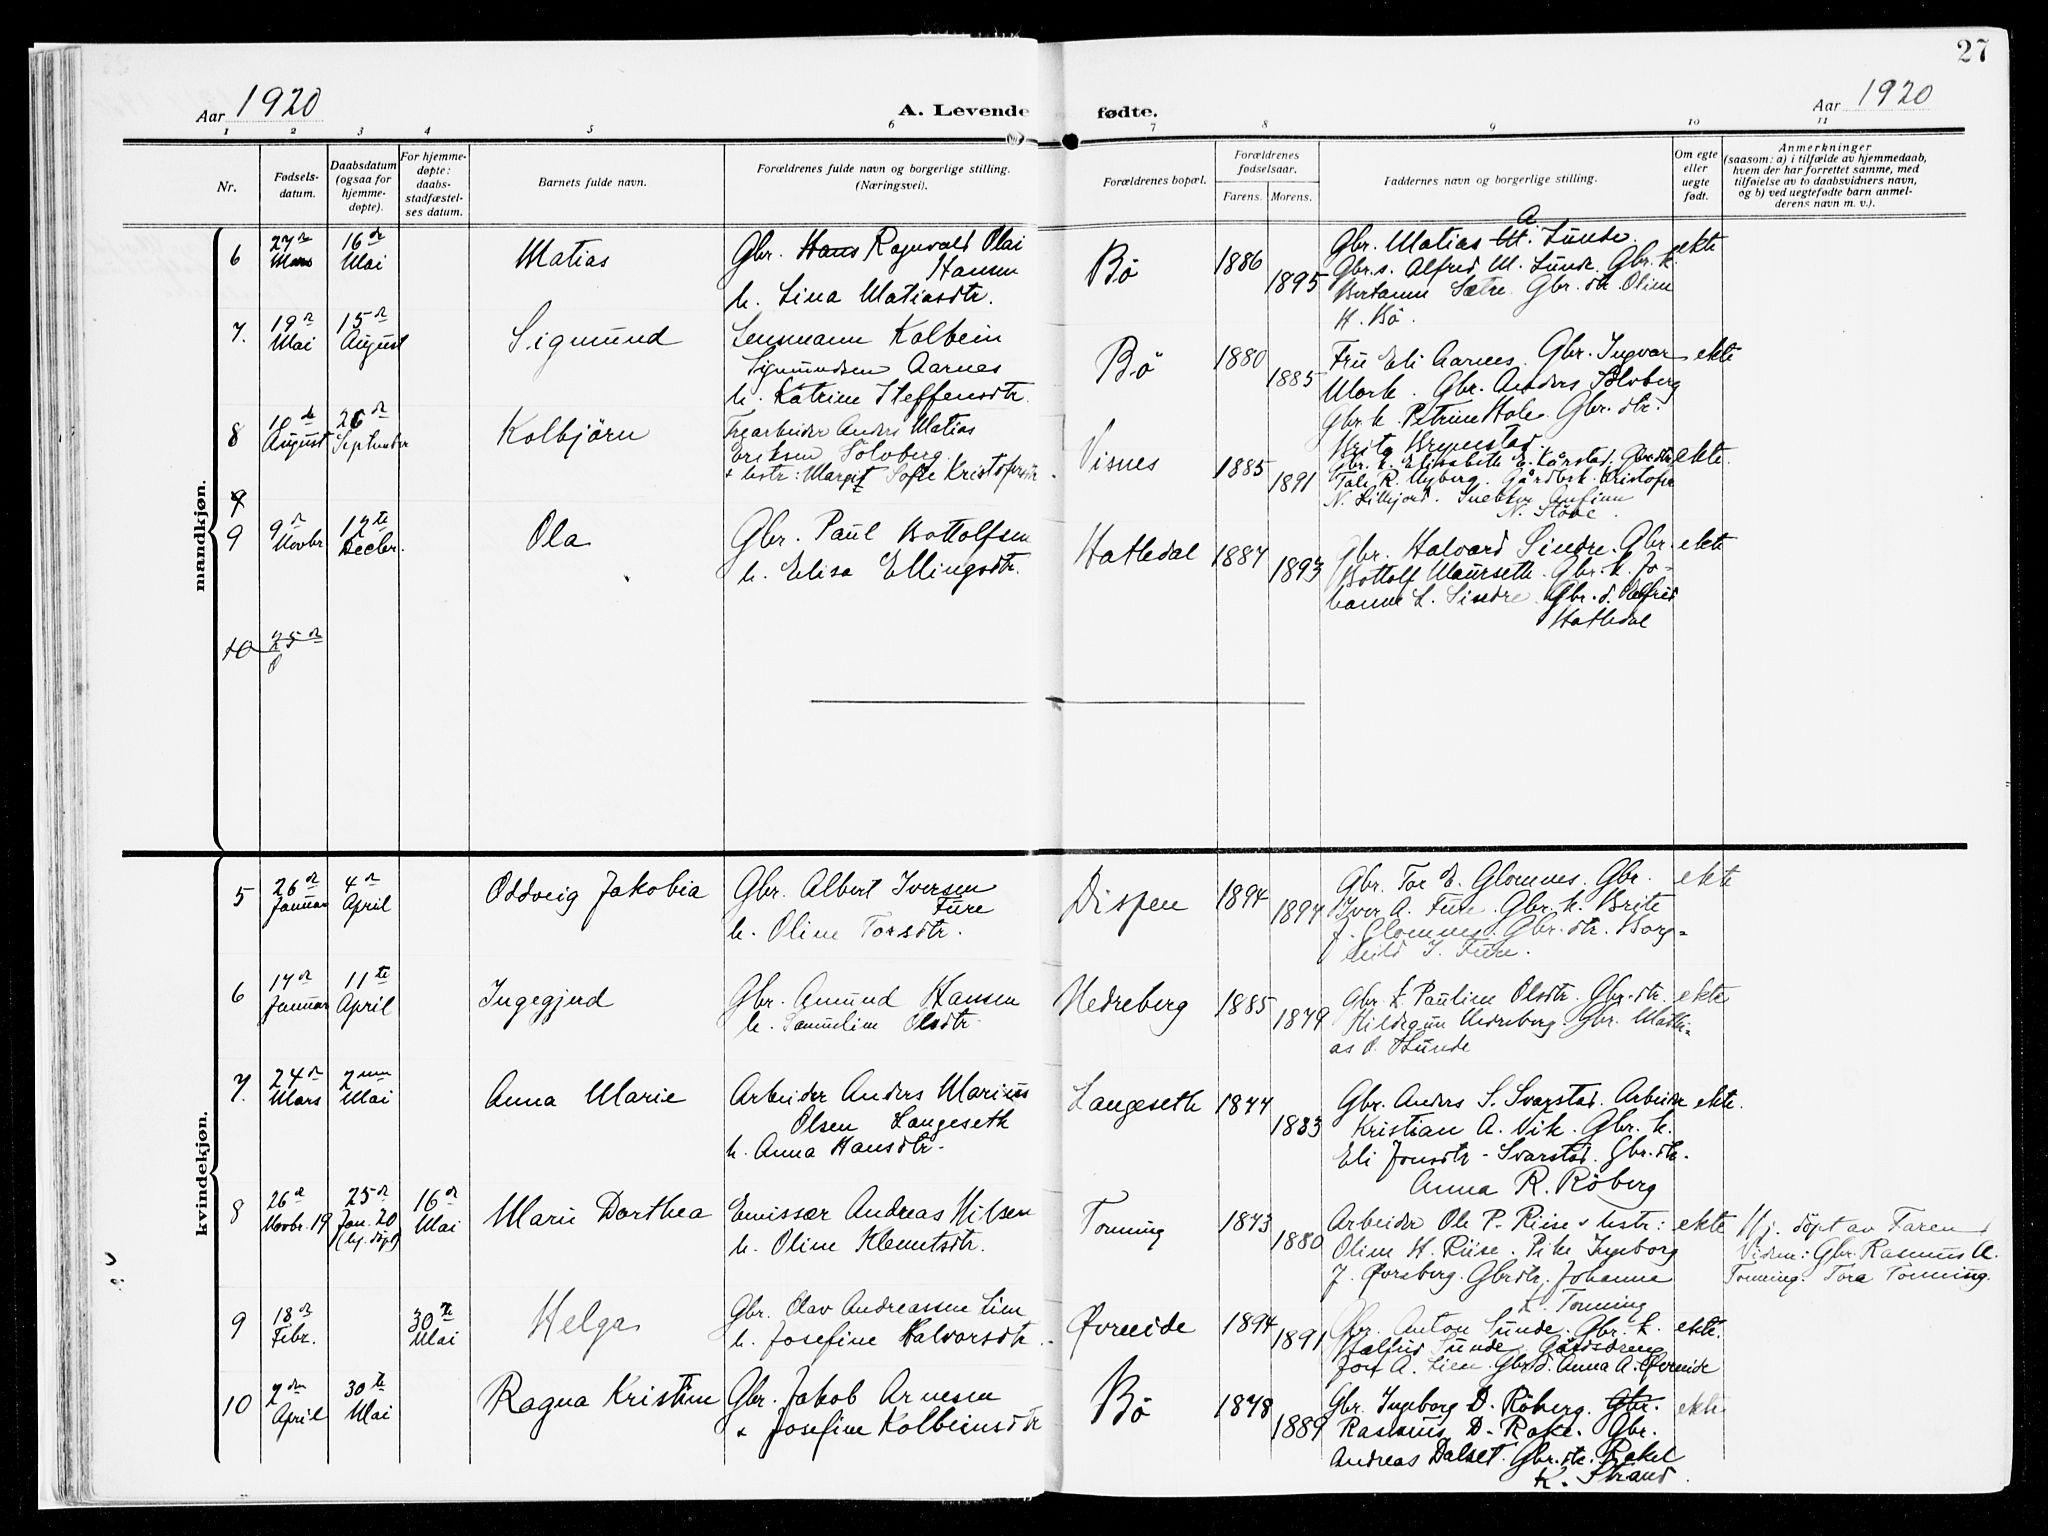 27
Aar 1920
A. Levende fødte.
Aar 1920
1 2 3 4 5 6 7 8 9 10 11
Nr.
Fødsels-
datum.
Daabsdatum
(ogsaa for
hjemme-
døpte).
For hjemme-
døpte:
daabs-
stadfæstel-
ses datum.
Barnets fulde navn.
Forældrenes fulde navn og borgerlige stilling.
(Næringsvei).
Forældrenes bopæl.
Forældrenes
fødselsaar.
Farens. Morens.
Faddernes navn og borgerlige stilling.
Om egte
eller
uegte
født.
Anmerkninger
(saasom: a) i tilfælde av hjemmedaab,
hvem der har forrettet samme, med
tilføielse av to daabsvidners navn,
og b) ved uegtefødte barn anmel-
derens navn m. v.).
mandkjøn.
6
27de
Mars
16de
Mai
Matias
Gbr. Hans Ragnvald Olai
Hansen
h. Lina Matiasdtr.
Bö
1886
1895
Gbr. Matias M. A Sunde.
Gbr.s. Alfred M. Sunde. Gbr. k.
Sætre. Gbr. dtr. Oline
H. Bö.
ekte
7.
19de
Mai
15de
August
Sigmund
Lensmann Kolbein
Sigmundsen Aarnes
h. Katrine Steffensdtr.
Bö
1880
1885
Fru Eli Aarnes. Gbr. Ingvar
Mork. Gbr. Anders Solvberg
Gbr. k. Petrine Hole. Gbr. dtr.
Brita
ekte
8
10de
August
26de
September
Kolbjörn
Trearbeider Anders Matias
Eriksen Solvberg.
+ hstr: Margit Sofie Kristofersdtr.
Visnes
1885
1891
Gbr. k. Elisabeth E. Kårstad. Gbr. dtr.
Tale R. Myberg. Gårdbr. Kristofer
N. Lillejord. Snekker Anfinn
N. Stöve.
ekte.
9
9
9de
Novbr
12te
Decbr.
Ola
Gbr. Paul Bottolfsen
h. Elisa Ellingsdtr.
Hatledal
1887
1893
Gbr. Halvard Sindre. Gbr.
Bottolf Maurseth. Gbr. k. Jo-
hanne L. Sindre. Gbr. d.
Hatledal
ekte
10
25de
kvindekjøn.
5
26de
Januar
4de
April
Oddveig Jakobia
Gbr. Albert Iversen
Fure
h. Oline Torsdtr.
Dispen
1894
1897
Gbr. Tor E. Glomnes. Gbr.
Iver A. Fure. Gbr. k. Brite
J. Glomnes. Gbr. dtr. Borg-
hild I. Fure.
ekte
6
17de
Januar
11te
April
Ingegjerd
Gbr. Amund Hansen
h. Samueline Olsdtr.
Nedreberg
1885
1879
Gbr. k. Pauline Olsdtr. Gbr. dtr.
Hildegun Nedreberg. Gbr. Matti-
as O. Sunde
ekte
7.
24de
Mars
2nen
Mai
Anna Marie
Arbeider Anders Marius
Olsen Langeseth
h. Anna Hansdtr.
Langeseth
1877
1883
Gbr. Anders S. Svarstad. Arbeider
Kristian A. Vik. Gbr. k.
Eli Jonsdtr. Svarstad. Gbr. dtr.
Anna R. Röberg
ekte.
8
26de
Novbr. 19
25de
Jan. 20
(hj. döpt)
16de
Mai
Marie Dorthea
Emissær Andreas Nilsen
h. Oline Klemetsdtr.
Tonning
1873
1880
Arbeider Ole P. Riise + hstr:
Oline H. Riise. Pike Ingeborg
J. Övreberg. Gbrdtr. Johanne
L. Tonning
ekte
Hj. döpt av Faren
Vidner: Gbr. Rasmus A.
Tonning. Tora Tonning.
9
18de
Febr.
30te
Mai
Helga
Gbr. Olav Andreassen Lien
h. Josefine Halvorsdtr.
Øvreeide
1894
1891
Gbr. Anton Sunde. Gbr. k.
Sunde. Gårdsdreng
Jon A. Lien. Gbr.d. Anna A. Øvreeide
ekte.
10
2den
April
30te
Mai
Ragna Kristine
Gbr. Jakob Arnesen
+ Josefine Kolbeinsdtr
Bö
1878
1889
Gbr. Ingeborg D. Röberg. Gbr.
Rasmus D. Rake. Gbr.
Andreas Dalset. Gbr. dtr. Rakel
K. Strand.
ekte